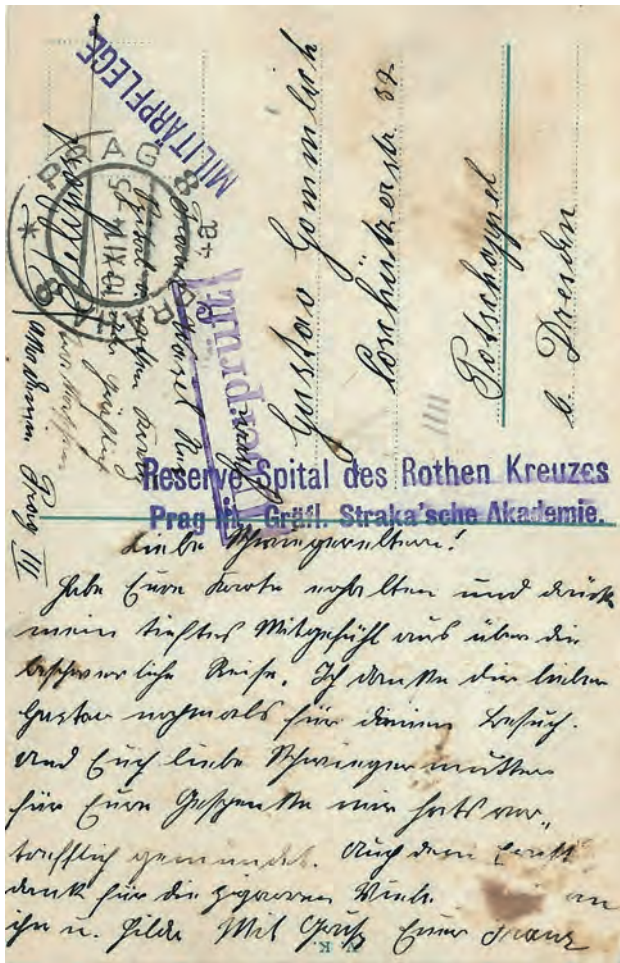 MILITÄRPFLEGE.
PRAG 8
PRAHA 8
4a
Gustav Gommlich
Coschützerstr 37
Potschappel
b. Dresden
Überprüft
Reserve Spital des Rothen Kreuzes
Prag III. Gräfl. Straka'sche Akademie.
Akademie Prag III
Liebe Schwiegereltern!
Habe Eure Karte erhalten und drücke
mein tiefstes Mitgefühl aus über die
beschwerliche Reise. Ich danke dir lieber
Gustav nochmals für deinen Besuch.
Und Euch liebe Schwiegermutter
für Eure Geschenke mir hats vor„
trefflich gemundet. Auch dem Ernst
dank für die Zigarren Viele an
ihn u. Hilde Mit Gruß Euer Franz